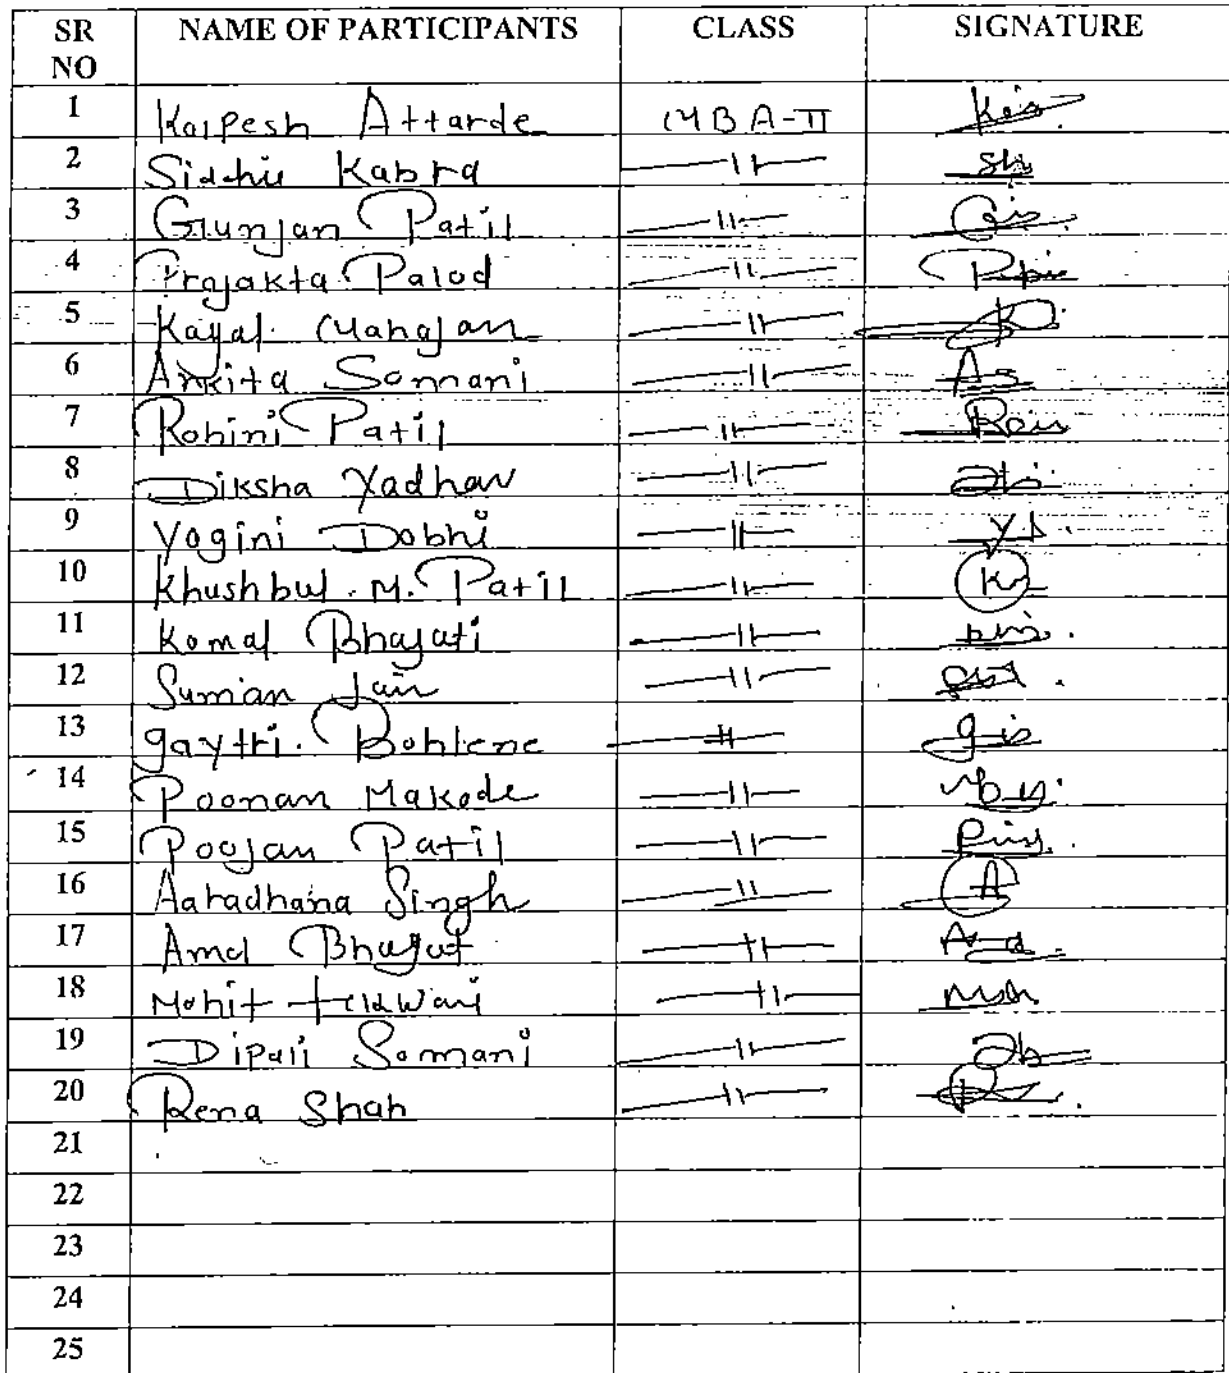 SR NO NAME OF PARTICIPANTS CLASS SIGNATURE
1 Kalpesh Attarde MBA-II
2 Siddhi Kabra —11—
3 Gunjan Patil —11—
4 Prajakta Palod —11—
5 Kajal Mahajan —11—
6 Ankita Somani —11—
7 Rohini Patil —11—
8 Diksha Yadhav —11—
9 Yogini Dobhi —11—
10 Khushbu M. Patil —11—
11 Komal —11—
12 Suman Jain —11—
13 gaytri. —11—
14 Poonam Makode —11—
15 Poojan Patil —11—
16 Aaradhana Singh —11— A
17 —11—
18 Mohit Tekwani —11—
19 Dipali Somani —11—
20 Rena Shah —11—
21
22
23
24
25